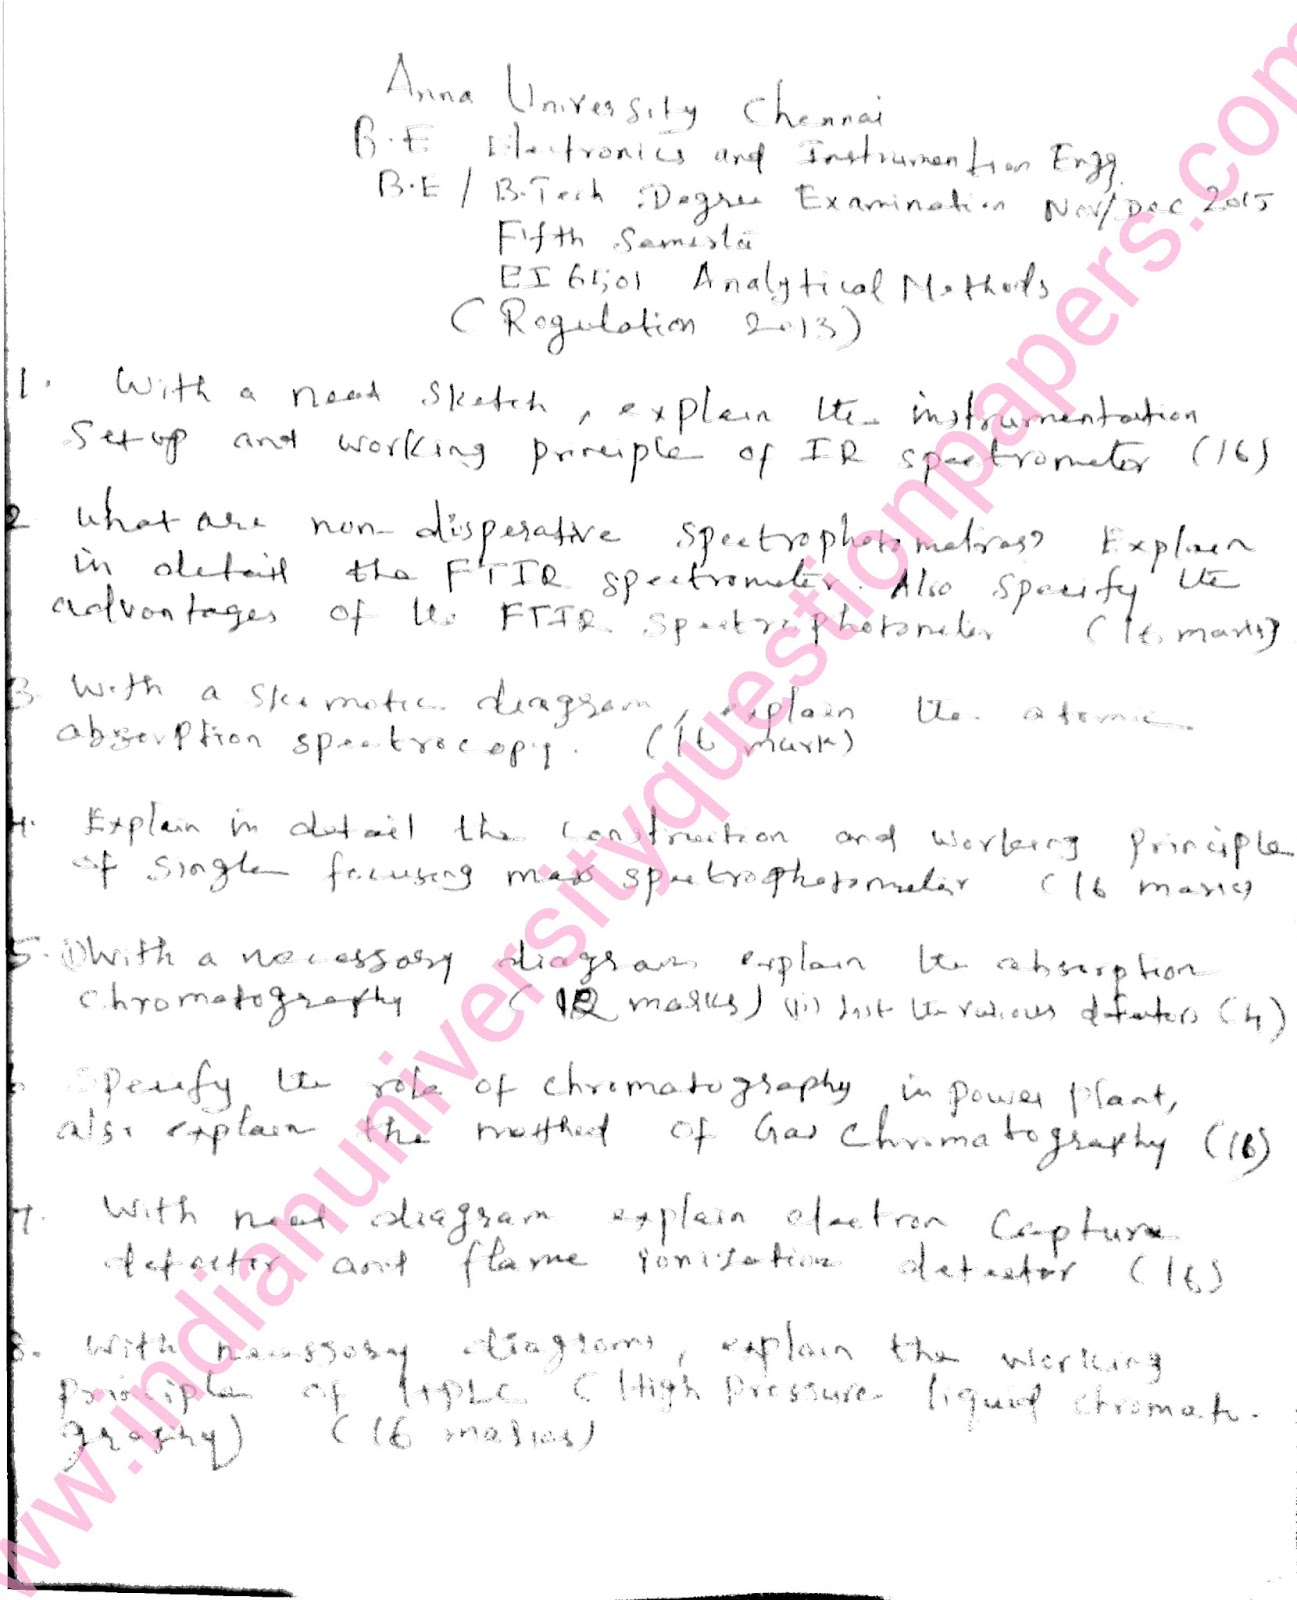 Anna University Chennai
B.E Electronics and Instrumention Engg.
B.E / B.Tech Degree Examination Nov/Dec 2015
Fifth Semester
EI 6501 Analytical Methods
(Regulation 2013)
1. With a neat sketch, explain the instrumentation
setup and working principle of IR spectrometer (16)
2 What are non-dispersative spectrophotometers? Explain
in detail the FTIR spectrometer. Also specify the
advantages of the FTIR spectrophotometer (16 marks)
3. With a skematic diagram, explain the atomic
absorption spectrocopy. (16 mark)
4. Explain in detail the construction and working principle
of single focusing mass spectrophotometer (16 marks)
5. i) With a necessary diagram explain the absorption
chromatography (12 marks) (ii) List the various detectors (4)
Specify the role of chromatography in power plant,
also explain the method of Gas chromatography (16)
7. With neat diagram explain electron capture
detector and flame ionization detector (16)
8. With necessary diagrams, explain the working
principle of HPLC (High Pressure liquid chromato-
graphy) (16 marks)
www.indianuniversityquestionpapers.com